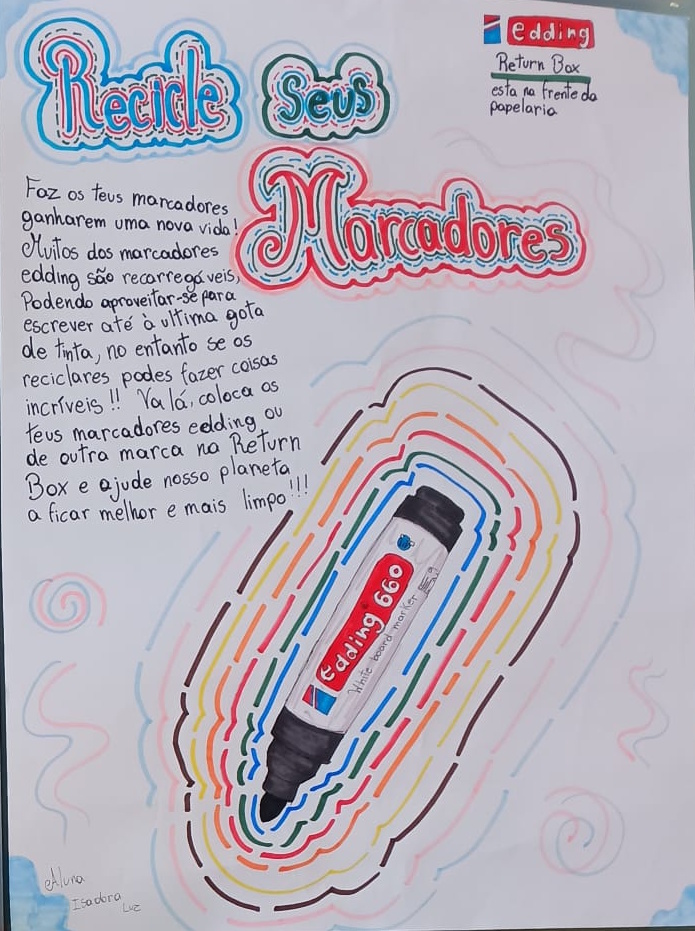 Recicle Seus
Marcadores
edding
Return Box
esta na frente da
papelaria
Faz os teus marcadores
ganharem uma nova vida!
Muitos dos marcadores
edding são recarregáveis,
Podendo aproveitar-se para
escrever até à ultima gota
de tinta, no entanto se os
reciclares podes fazer coisas
incríveis!! Va lá, coloca os
teus marcadores edding ou
de outra marca na Return
Box e ajude nosso planeta
a ficar melhor e mais limpo!!!
edding 660
White board marker
Aluna
Isadora
Luz